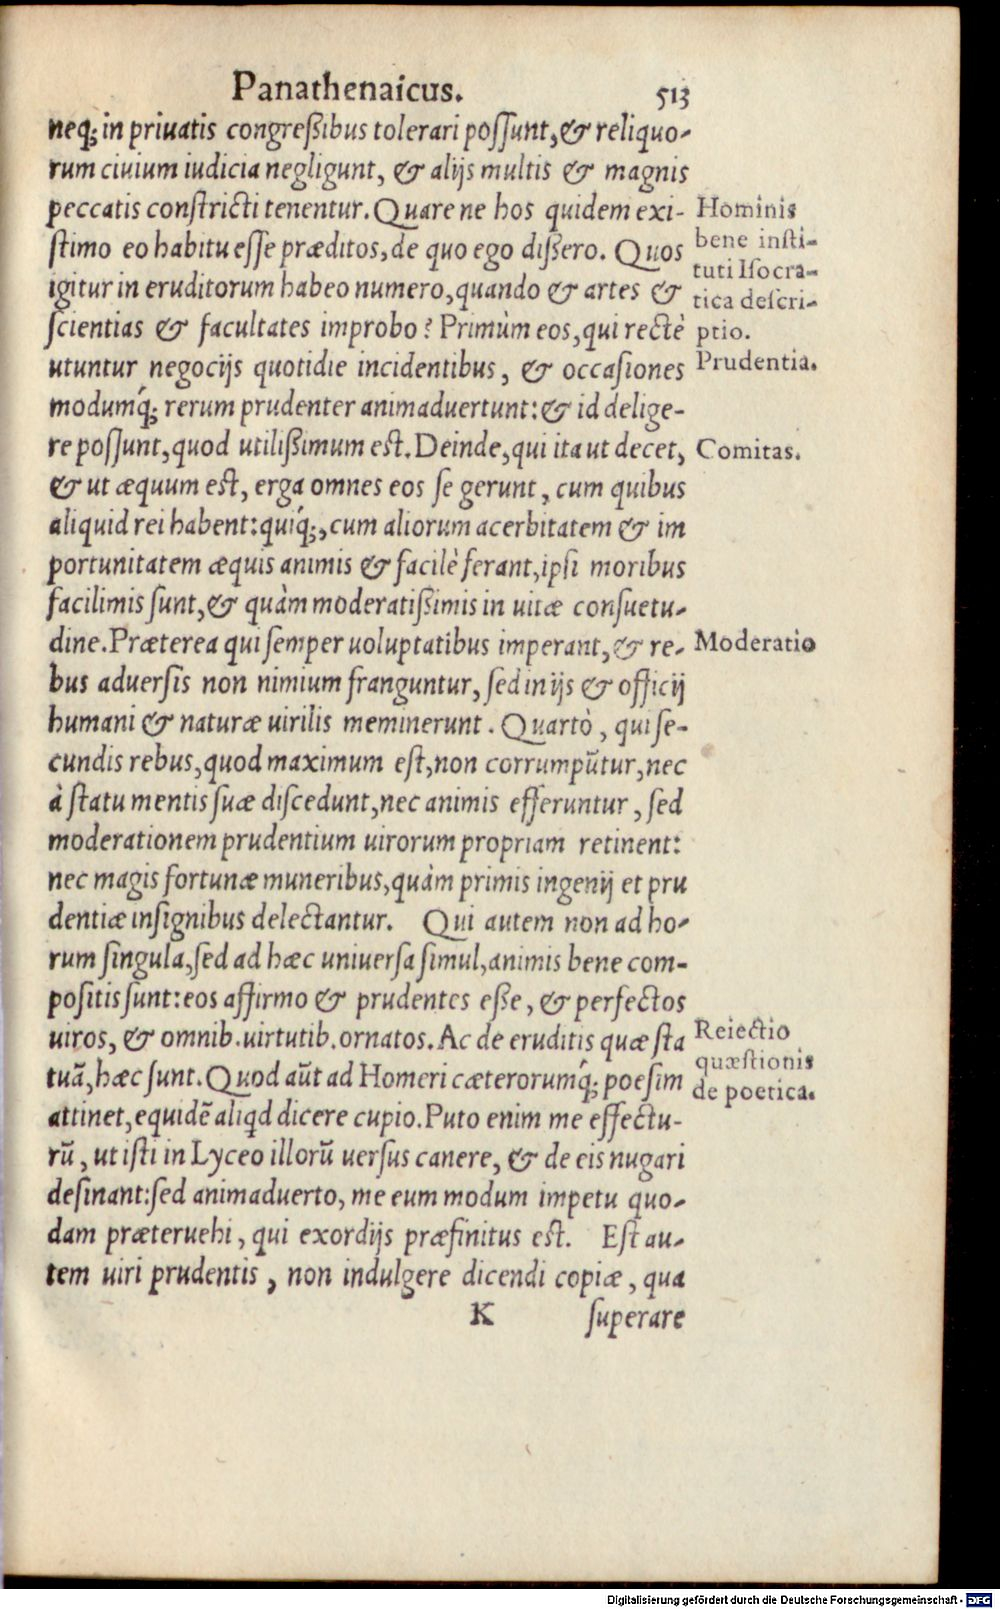 Panathenaicus. 513
neq́; in priuatis congreßibus tolerari poſſunt, & reliquo-
rum ciuium iudicia negligunt, & alijs multis & magnis
peccatis conſtricti tenentur. Quare ne hos quidem exi-
ſtimo eo habitu eſſe præditos, de quo ego dißero. Quos
igitur in eruditorum habeo numero, quando & artes &
ſcientias & facultates improbo? Primùm eos, qui rectè
utuntur negocijs quotidie incidentibus, & occaſiones
modumq́; rerum prudenter animaduertunt: & id delige-
re poſſunt, quod utilißimum eſt. Deinde, qui ita ut decet,
& ut æquum eſt, erga omnes eos ſe gerunt, cum quibus
aliquid rei habent: quiq́;, cum aliorum acerbitatem & im
portunitatem æquis animis & facilè ferant, ipſi moribus
facilimis ſunt, & quàm moderatißimis in uitæ conſuetu-
dine. Præterea qui ſemper uoluptatibus imperant, & re-
bus aduerſis non nimium franguntur, ſed in ijs & officij
humani & naturæ uirilis meminerunt. Quartò, qui ſe-
cundis rebus, quod maximum eſt, non corrumpūtur, nec
à ſtatu mentis ſuæ diſcedunt, nec animis efferuntur, ſed
moderationem prudentium uirorum propriam retinent:
nec magis fortunæ muneribus, quàm primis ingenij et pru
dentiæ inſignibus delectantur. Qui autem non ad ho-
rum ſingula, ſed ad hæc uniuerſa ſimul, animis bene com-
poſitis ſunt: eos affirmo & prudentes eße, & perfectos
uiros, & omnib. uirtutib. ornatos. Ac de eruditis quæ ſta
tuā, hæc ſunt. Quod aūt ad Homeri cæterorumq́; poeſim
attinet, equidē aliqd dicere cupio. Puto enim me effectu-
rū, ut iſti in Lyceo illorū uerſus canere, & de eis nugari
deſinant: ſed animaduerto, me eum modum impetu quo-
dam præteruehi, qui exordijs præfinitus eſt. Eſt au-
tem uiri prudentis, non indulgere dicendi copiæ, qua
K ſuperare
Hominis
bene inſti-
tuti Iſocra-
tica deſcri-
ptio.
Prudentia.
Comitas.
Moderatio
Reiectio
quæſtionis
de poetica.
Digitalisierung gefördert durch die Deutsche Forschungsgemeinschaft - DFG